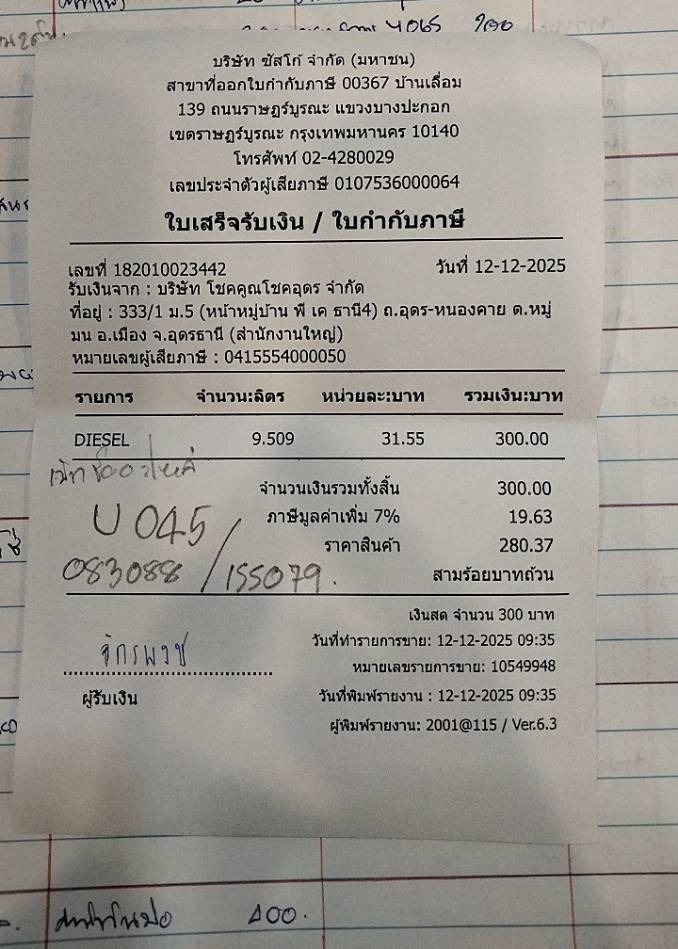 4065 200
บริษัท ซัสโก้ จำกัด (มหาชน)
สาขาที่ออกใบกำกับภาษี 00367 บ้านเลื่อม
139 ถนนราษฎร์บูรณะ แขวงบางปะกอก
เขตราษฎร์บูรณะ กรุงเทพมหานคร 10140
โทรศัพท์ 02-4280029
เลขประจำตัวผู้เสียภาษี 0107536000064
ใบเสร็จรับเงิน / ใบกำกับภาษี
เลขที่ 182010023442 วันที่ 12-12-2025
รับเงินจาก : บริษัท โชคคูณโชคอุดร จำกัด
ที่อยู่ : 333/1 ม.5 (หน้าหมู่บ้าน พี เค ธานี4) ถ.อุดร-หนองคาย ต.หมู่
มน อ.เมือง จ.อุดรธานี (สำนักงานใหญ่)
หมายเลขผู้เสียภาษี : 0415554000050
รายการ จำนวน:ลิตร หน่วยละ:บาท รวมเงิน:บาท
DIESEL 9.509 31.55 300.00
จำนวนเงินรวมทั้งสิ้น 300.00
U 045 ภาษีมูลค่าเพิ่ม 7% 19.63
ราคาสินค้า 280.37
083088 / 155079. สามร้อยบาทถ้วน
เงินสด จำนวน 300 บาท
วันที่ทำรายการขาย: 12-12-2025 09:35
จักรพงษ์ หมายเลขรายการขาย: 10549948
ผู้รับเงิน วันที่พิมพ์รายงาน : 12-12-2025 09:35
ผู้พิมพ์รายงาน: 2001@115 / Ver.6.3
400.